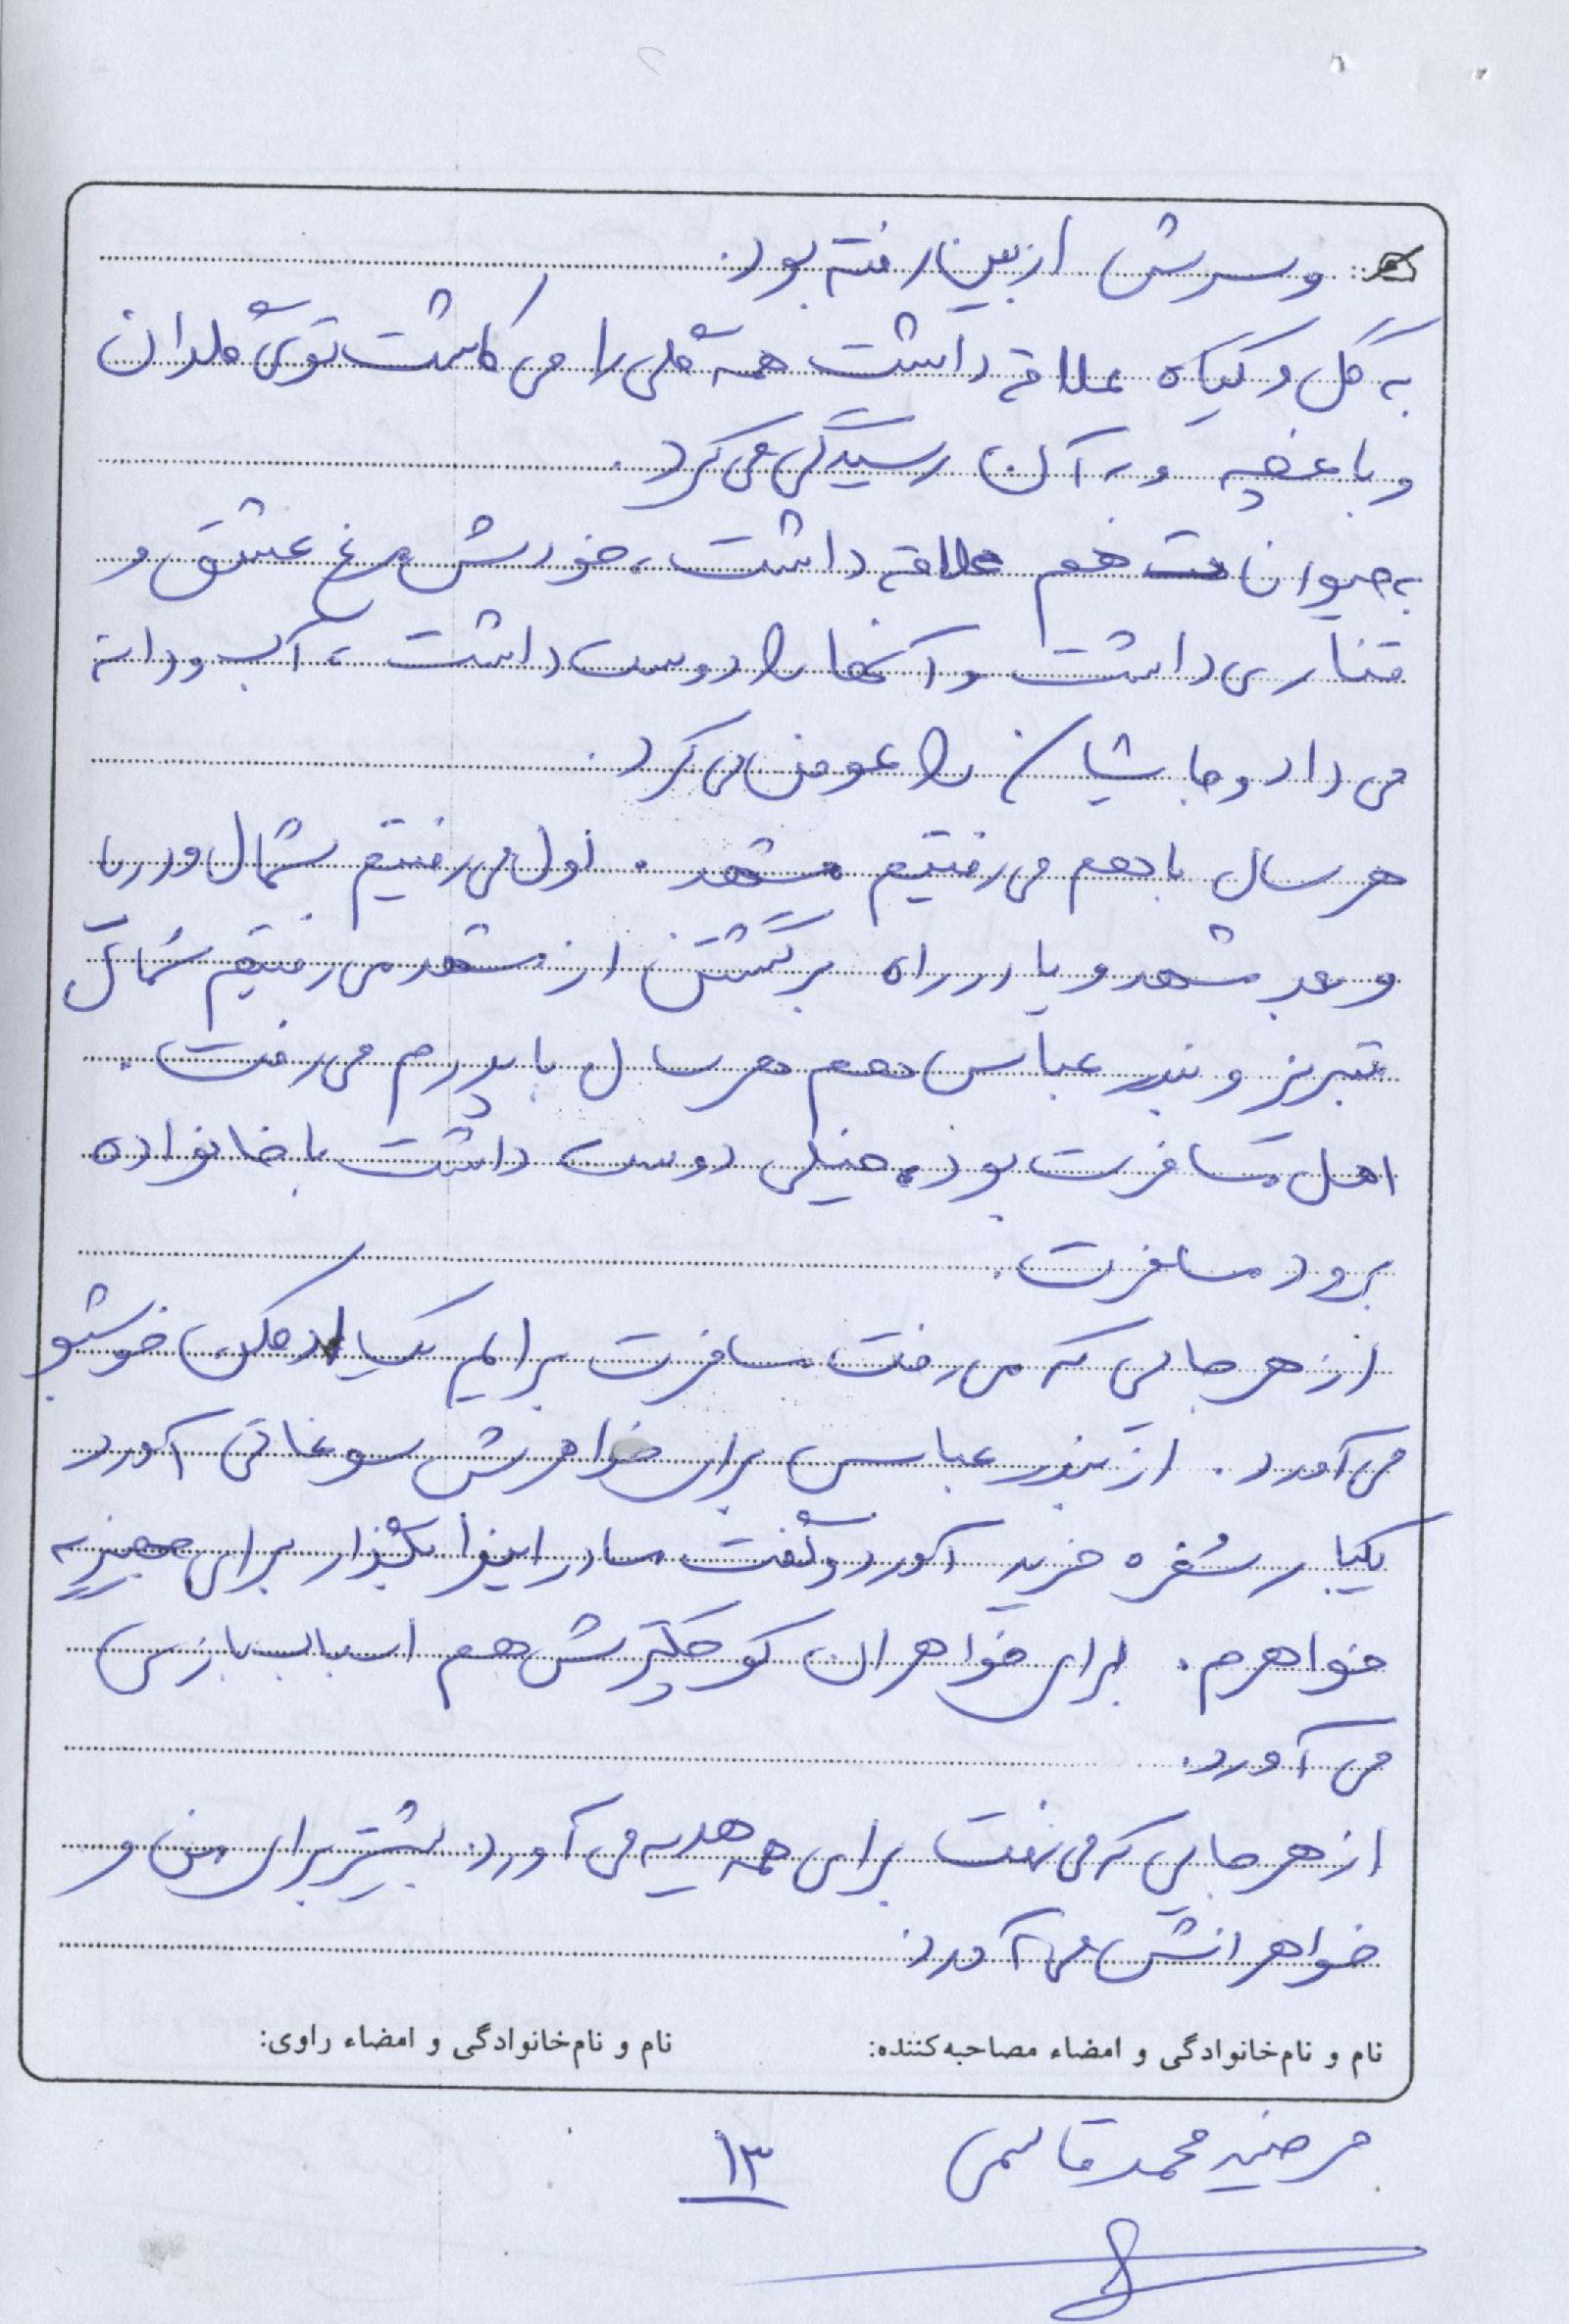 وسرش از بین رفته بود.
به گل و گیاه علاقه داشت همه گلی را می کاشت توی گلدان
و باغچه و به آن رسیدگی می کرد.
به حیوانات هم علاقه داشت، خودش مرغ عشق و
قناری داشت و آنها را دوست داشت، آب و دانه
می داد و جایشان را عوض می کرد.
هر سال با هم می رفتیم مشهد. اول می رفتیم شمال و دریا
و بعد مشهد و یا در راه برگشتن از مشهد می رفتیم شمال
تبریز و بندر عباس هم هر سال با پدرم می رفت.
اهل مسافرت بود. خیلی دوست داشت با خانواده
برود مسافرت.
از هر جایی که می رفت مسافرت برایم یک ادکلن خوشبو
می آورد. از بندر عباس برای خواهرش سوغاتی آورد
یکبار سفره خرید آورد و گفت مادر اینرا بگذار برای جهیزیه
خواهرم. برای خواهران کوچکترش هم اسباب بازی
می آورد.
از هر جایی که می رفت برای همه هدیه می آورد. بیشتر برای من و
خواهرانش می آورد.
نام و نام‌خانوادگی و امضاء مصاحبه‌کننده: نام و نام‌خانوادگی و امضاء راوی:
مرضیه محمدقاسمی ۱۳